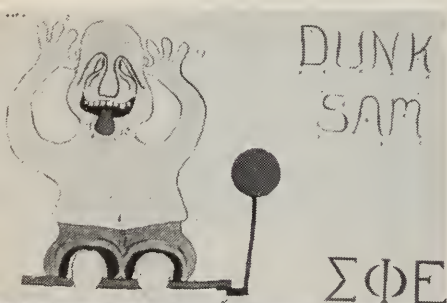 DUNK
SAM
ΣΦΕ